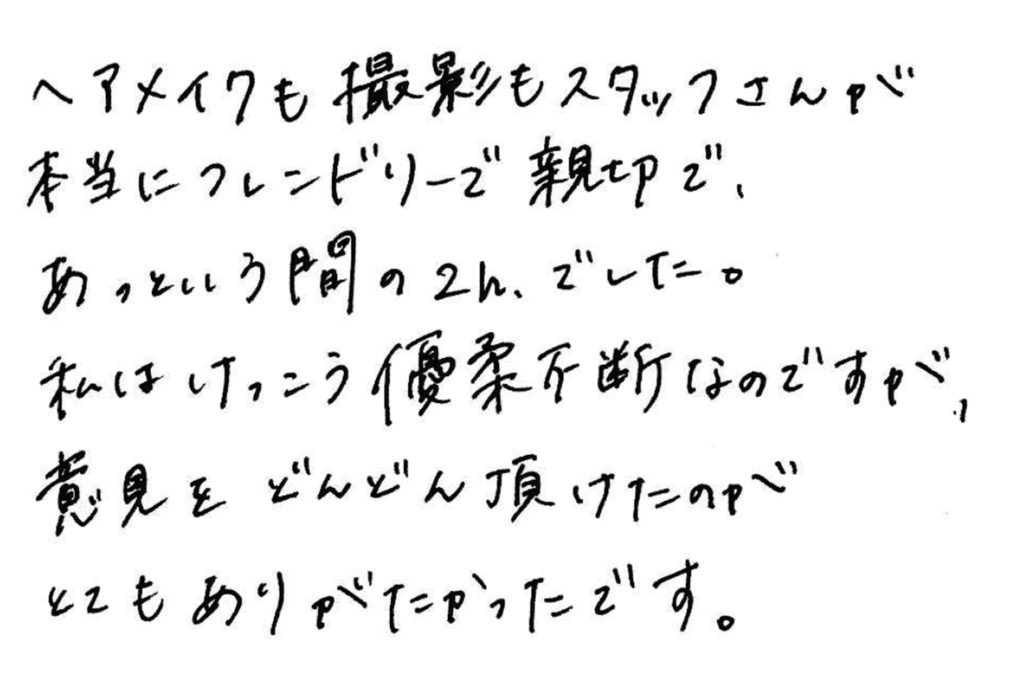 ヘアメイクも撮影もスタッフさんが
本当にフレンドリーで親切で、
あっという間の2h、でした。
私はけっこう優柔不断なのですが、
意見をどんどん頂けたのが
とてもありがたかったです。